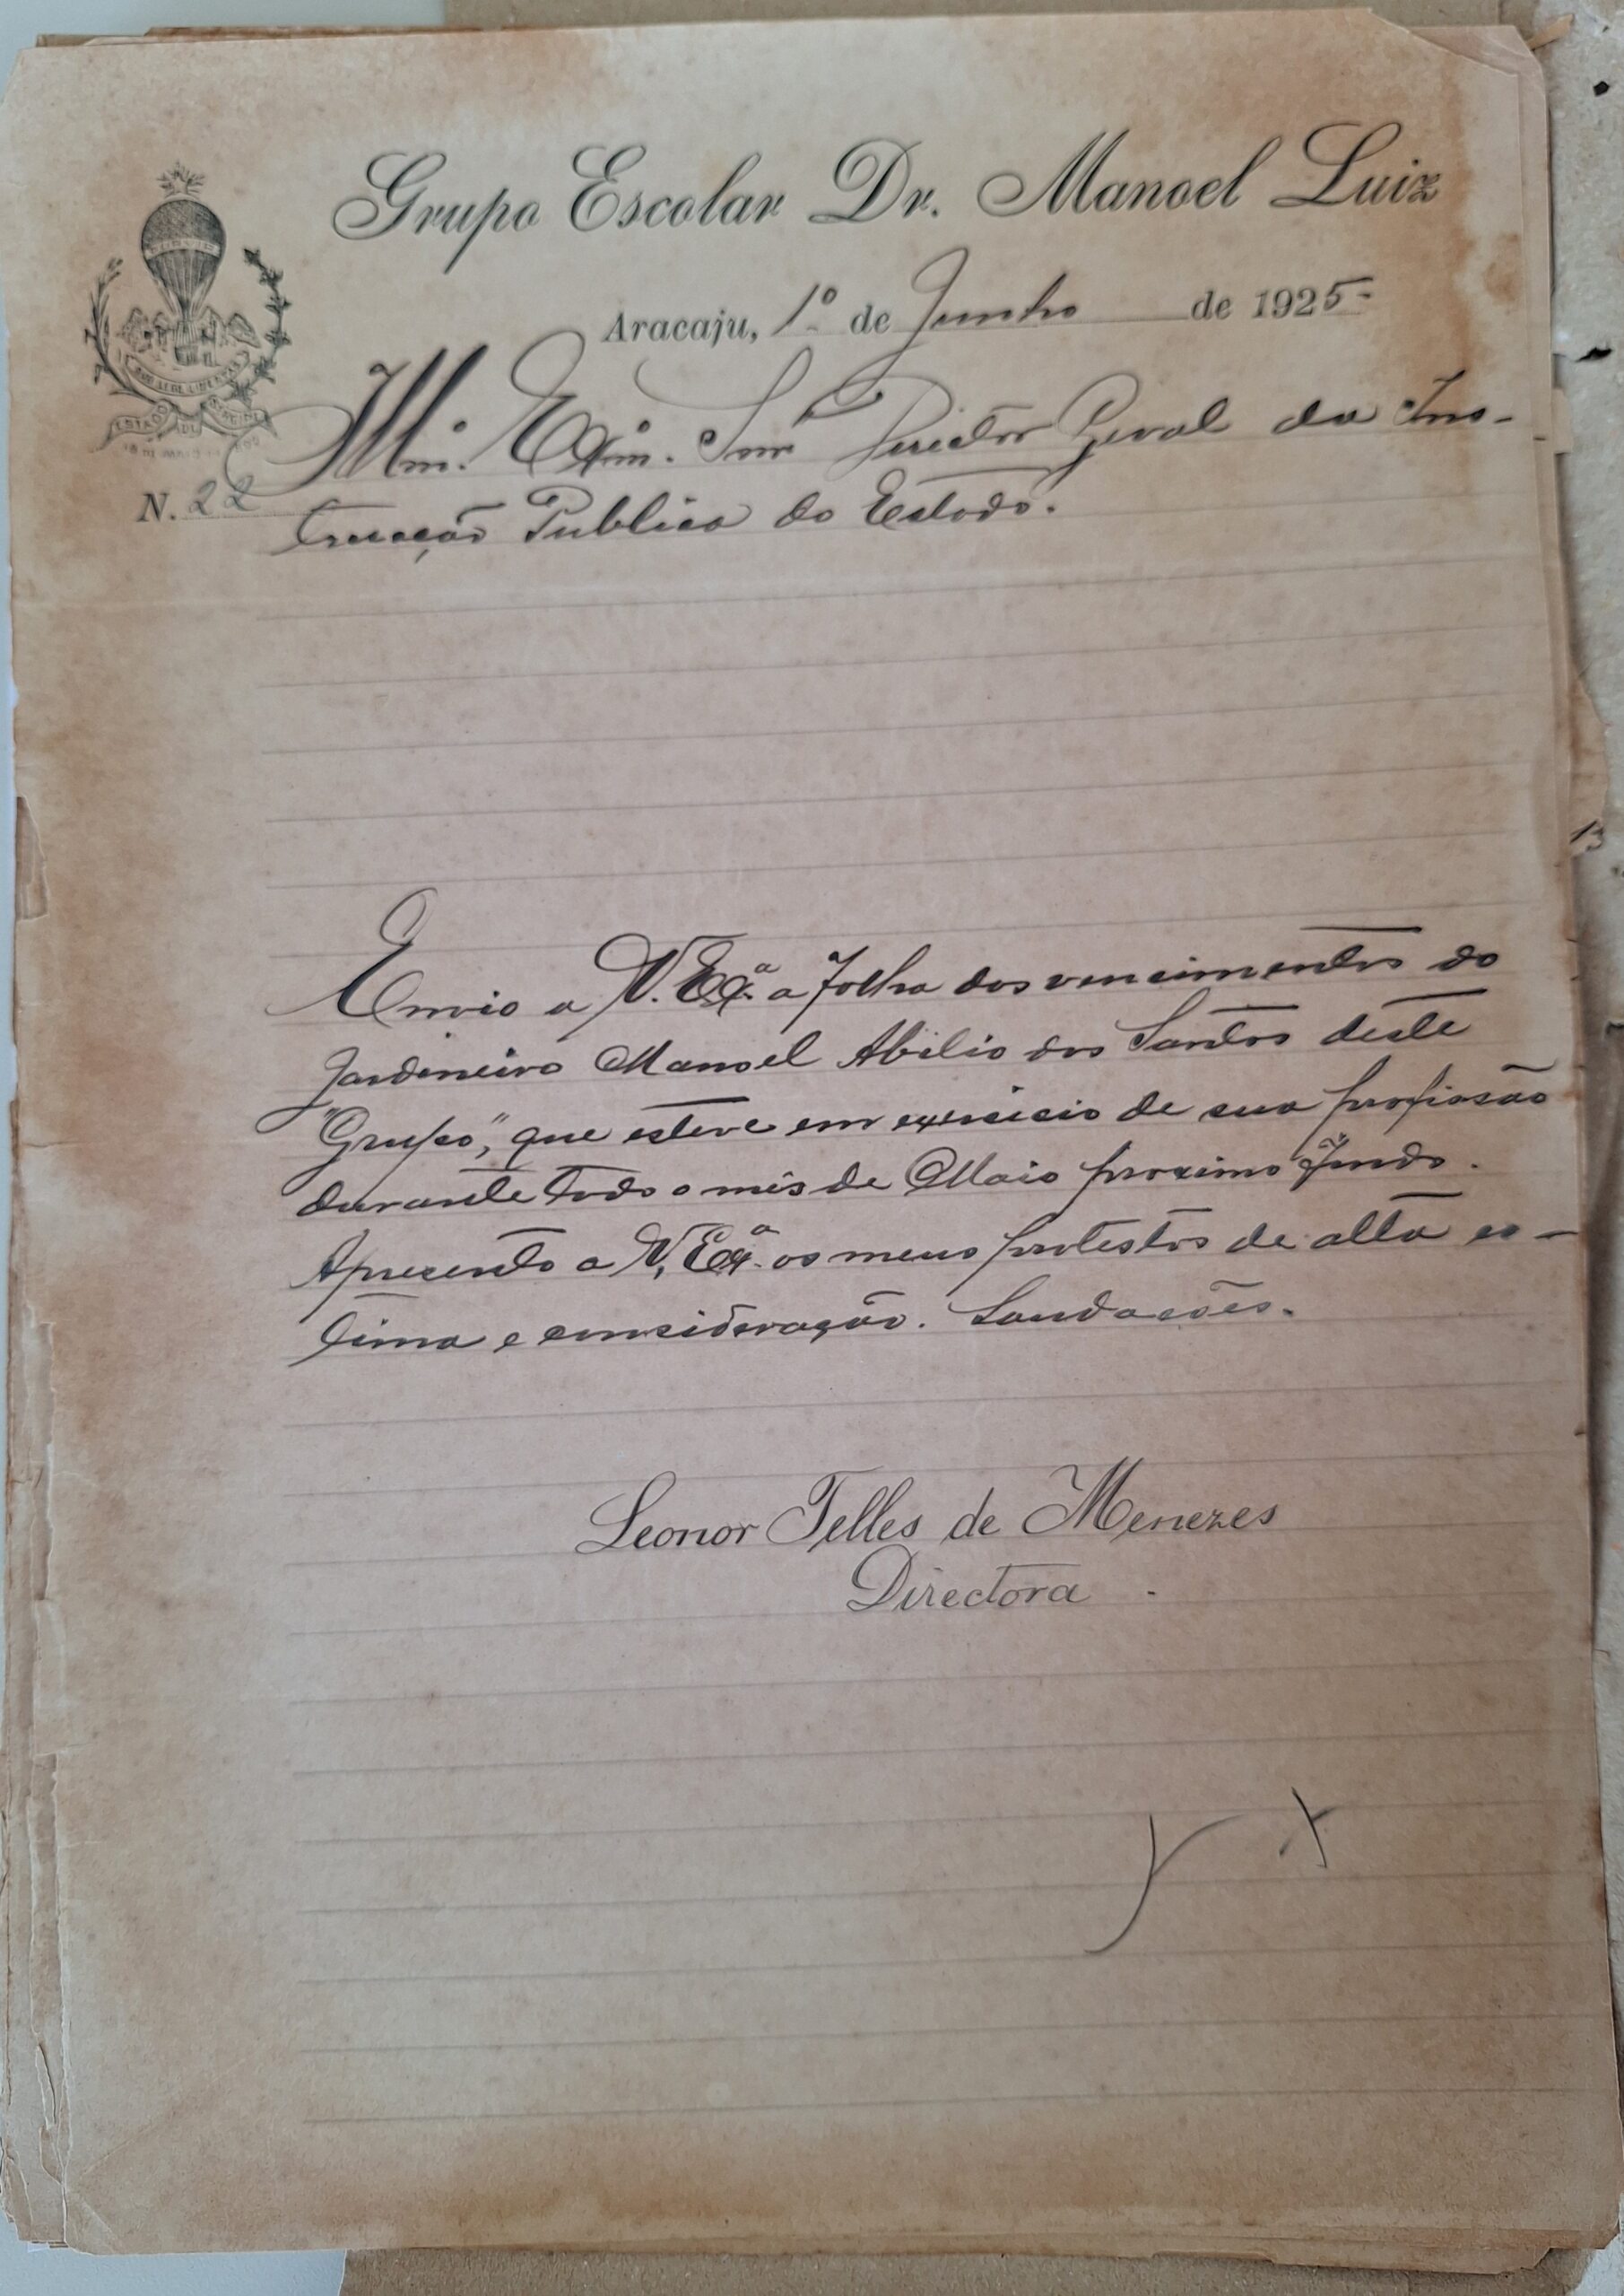 Grupo Escolar Dr. Manoel Luiz
Aracaju, 1º de Junho de 1925
Illmº. Exmº. Snr. Director Geral da Ins-
N. 22
trucção Publica do Estado.
Envio a V. Exª. a folha dos vencimentos do
jardineiro Manoel Abilio dos Santos deste
"Grupo", que esteve em exercicio de sua profissão
durante todo o mês de Maio proximo findo.
Apresento a V. Exª. os meus protestos de alta es-
tima e consideração. Saudações.
Leonor Telles de Menezes
Directora